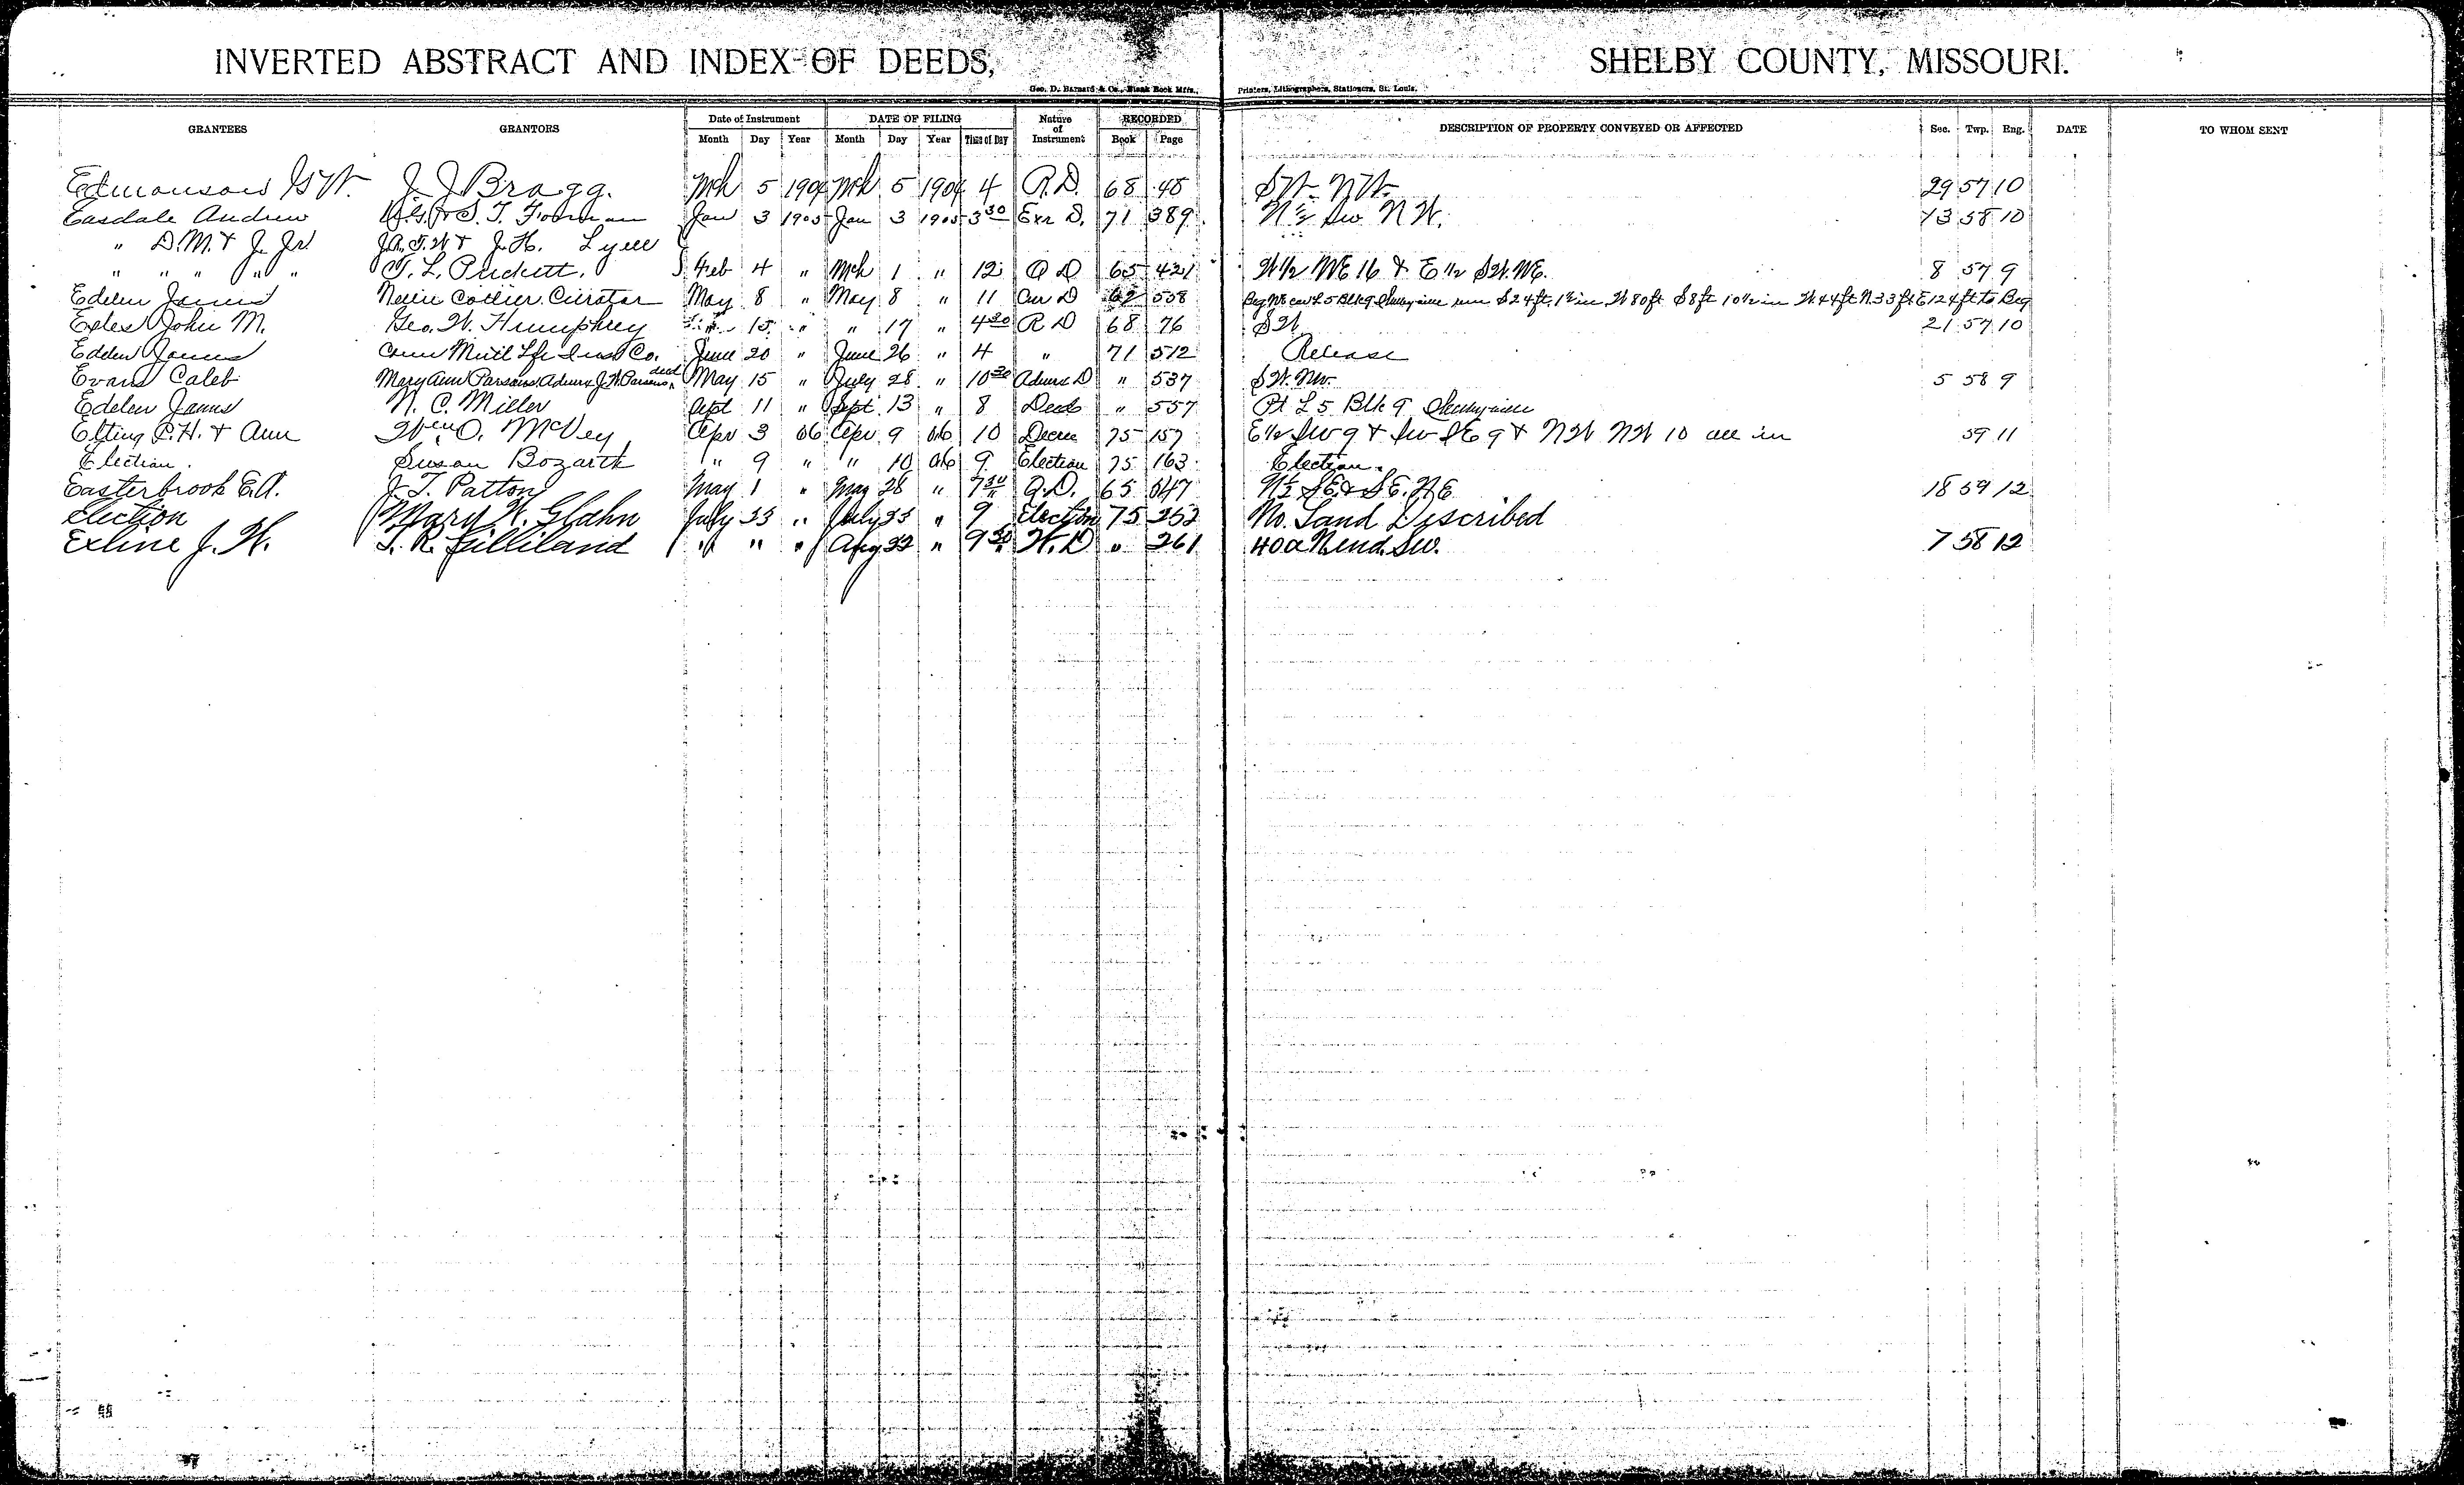 INVERTED ABSTRACT AND INDEX OF DEEDS, SHELBY COUNTY, MISSOURI.
Geo. D. Barnard & Co., Blank Book Mfrs., Printers, Lithographers, Stationers, St. Louis.
GRANTEES GRANTORS Date of Instrument DATE OF FILING Nature of Instrument RECORDED DESCRIPTION OF PROPERTY CONVEYED OR AFFECTED Sec. Twp. Rng. DATE TO WHOM SENT
Month Day Year Month Day Year Time of Day Book Page
Edmonson G W. J. J. Bragg. Mch 5 1904 Mch 5 1904 4 R.D. 68 48 SW. NW. 29 57 10
Easdale Andrew & S. T. Foorman Jan 3 1905 Jan 3 1905 3 30 Exr D. 71 389 N½ Sw NW. 13 58 10
" D. M. & J. Jr J.A., T.W & J.H. Lyell
" " " " " T. L. Puckett. Feb 4 " Mch 1 " 12 Q D 65 421 W 1/2 NE 16 & E 1/2 SW. NE. 8 57 9
Edelen James Nellie Collier Curator May 8 " May 8 " 11 Cur D 62 538 Beg NE cor L 5 Blk 9 Shelbyville run S 24 ft. 1½ in W 80 ft S 8 ft 10 1/2 in W. 44 ft N. 33 ft E 124 ft to Beg
John M. Geo. W. Humphrey 15 " " 17 " 4 30 R D 68 76 SW 21 57 10
Edelen James Conn Mutl Life Insur Co. June 20 " June 26 " 4 " 71 512 Release
Evans Caleb Mary Ann Parsons Admrx J. W. Parsons decd May 15 " July 28 " 10 30 Admrx D " 537 SW. NW. 5 58 9
Edelen James N. C. Miller Sept 11 " Sept 13 " 8 Deed " 557 Pt L 5 Blk 9 Shelbyville
Elting P. H. & Ann Wm O. McVey Apr 3 06 Apr 9 06 10 Decree 75 157 E 1/2 Sw 9 & Sw SE 9 & NW NW 10 all in 59 11
Election. Susan Bozarth " 9 " " 10 06 9 Election 75 163 Election.
Easterbrook E. A. J. T. Patton May 1 " May 28 " 7 30 Q.D. 65 547 N½ SE & SE. NE 18 59 12
Election Mary N. Glahn July 23 " July 23 " 9 Election 75 252 No. Land Described
Exline J. W. T. R. Gilliland " " " Aug 22 " 9 30 W. D " 261 40 a N. end. Sw. 7 58 12